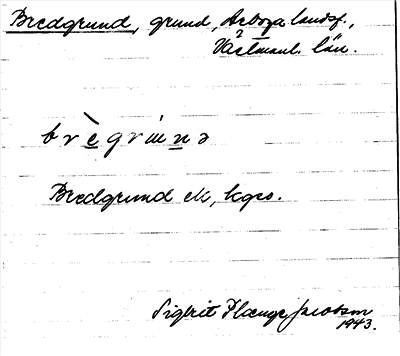 Bredgrund, grund, Arboga landsf.,
Västmanl. län.
brègrúnə
Bredgrund ek, kgrs.
Sigbrit Plænge Jacobson
1943.